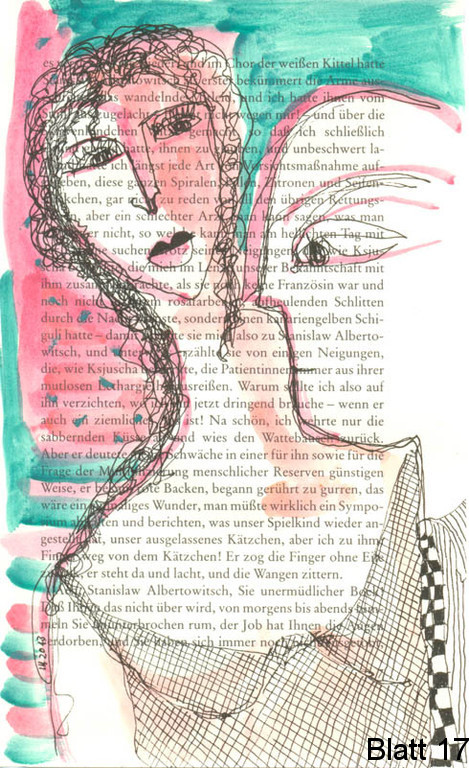 im Chor der weißen Kittel hatte
erster bekümmert die Arme aus-
wandelnde und ich hatte ihnen vom
ausgelacht nicht wegen mir! – und über die
gemacht, so daß ich schließlich
hatte, ihnen zu und unbeschwert la-
ich längst jede Art Vorsichtsmaßnahme auf-
geben, diese ganzen Spiralen, Zitronen und Seifen-
gar zu reden von all den übrigen Rettungs-
aber ein schlechter Arzt, man kann sagen, was man
nicht, so am hellichten Tag mit
suchen trotz seiner Neigungen, wie Ksju-
scha die mich im Lenz unserer Bekanntschaft mit
ihm zusammenbrachte, als sie noch keine Französin war und
noch nicht in ihrem rosafarbenen, aufheulenden Schlitten
durch die Nacht sondern einen kanariengelben Schi-
guli hatte – damals sie mich also zu Stanislaw Alberto-
witsch, und unterwegs erzählte sie von einigen Neigungen,
die, wie Ksjuscha die Patientinnen immer aus ihrer
mutlosen Lethargie herausreißen. Warum sollte ich also auf
ihn verzichten, wo ich ihn jetzt dringend brauchte – wenn er
auch ein ziemlicher ist! Na schön, ich wehrte nur die
sabbernden Küsse ab und wies den Wattebausch zurück.
Aber er deutete Schwäche in einer für ihn sowie für die
Frage der menschlicher Reserven günstigen
Weise, er bekam rote Backen, begann gerührt zu gurren, das
wäre ein einmaliges Wunder, man müßte wirklich ein Sympo-
sium abhalten und berichten, was unser Spielkind wieder an-
gestellt hat, unser ausgelassenes Kätzchen, aber ich zu ihm:
Finger weg von dem Kätzchen! Er zog die Finger ohne Eile
er steht da und lacht, und die Wangen zittern.
Stanislaw Albertowitsch, Sie unermüdlicher Bock!
Daß Ihnen das nicht über wird, von morgens bis abends fum-
meln Sie ununterbrochen rum, der Job hat Ihnen die Augen
verdorben, und Sie haben sich immer noch nicht
IX 2013
Blatt 17